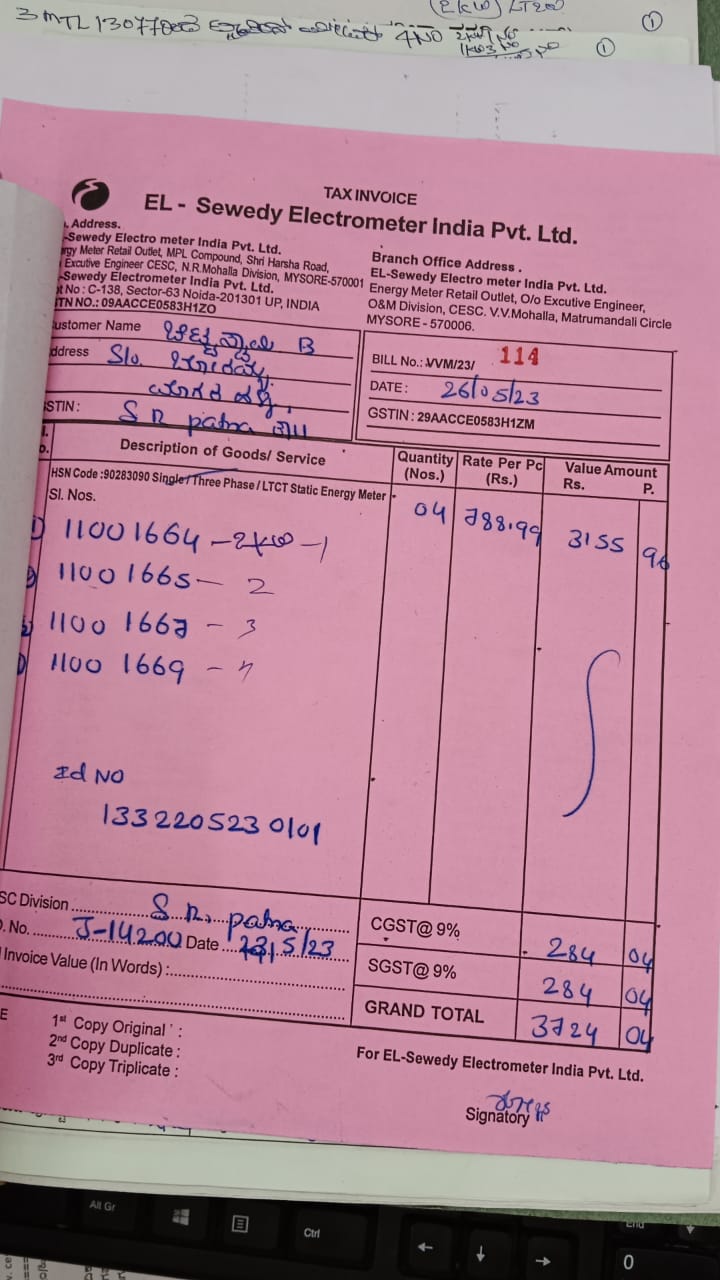 3 MTL 1307708
(2KW) LT200
1
1
TAX INVOICE
EL - Sewedy Electrometer India Pvt. Ltd.
. Address.
-Sewedy Electro meter India Pvt. Ltd.
rgy Meter Retail Outlet, MPL Compound, Shri Harsha Road,
Excutive Engineer CESC, N.R.Mohalla Division, MYSORE-570001
-Sewedy Electrometer India Pvt. Ltd.
t No : C-138, Sector-63 Noida-201301 UP, INDIA
TN NO.: 09AACCE0583H1ZO
Branch Office Address .
EL-Sewedy Electro meter India Pvt. Ltd.
Energy Meter Retail Outlet, O/o Excutive Engineer,
O&M Division, CESC. V.V.Mohalla, Matrumandali Circle
MYSORE - 570006.
ustomer Name B
ddress S/o.
STIN : S R patna
BILL No.: VVM/23/ 114
DATE : 26/05/23
GSTIN : 29AACCE0583H1ZM
Description of Goods/ Service
Quantity (Nos.)
Rate Per Pc (Rs.)
Value Amount
Rs. P.
HSN Code :90283090 Single / Three Phase / LTCT Static Energy Meter
Sl. Nos.
04 788.99 3155 96
1) 11001664 - 2KW - 1
11001665 - 2
11001667 - 3
11001669 - 4
Id NO
1332205230101
SC Division S R. patna
. No. J-14200 Date 23/5/23
Invoice Value (In Words) :
CGST@ 9% 284 04
SGST@ 9% 284 04
GRAND TOTAL 3724 04
E
1st Copy Original :
2nd Copy Duplicate :
3rd Copy Triplicate :
For EL-Sewedy Electrometer India Pvt. Ltd.
Signatory
Alt Gr
Ctrl
End
0